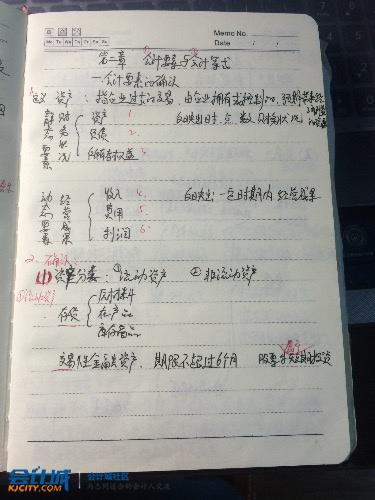 Memo No.
Mo Tu We Th Fr Sa Su
Date / /
第二章 会计要素与会计等式
一.会计要素的确认
定义 资产：指企业过去的交易，由企业拥有或控制的，预期
静态要素 财务状况
资产 1.
负债 2.
所有者权益 3.
反映出时点
动态要素 经营成果
收入 4.
费用 5.
利润 6.
反映出一定时期内 经营成果
2.确认：
(1) 资产分类：①流动资产 ②非流动资产
①流动资产
存货
原材料
在产品
库存商品
交易性金融资产，期限不超过6个月 股票
会计城
KJCITY.COM
会计城社区
与志同道合的会计人交流